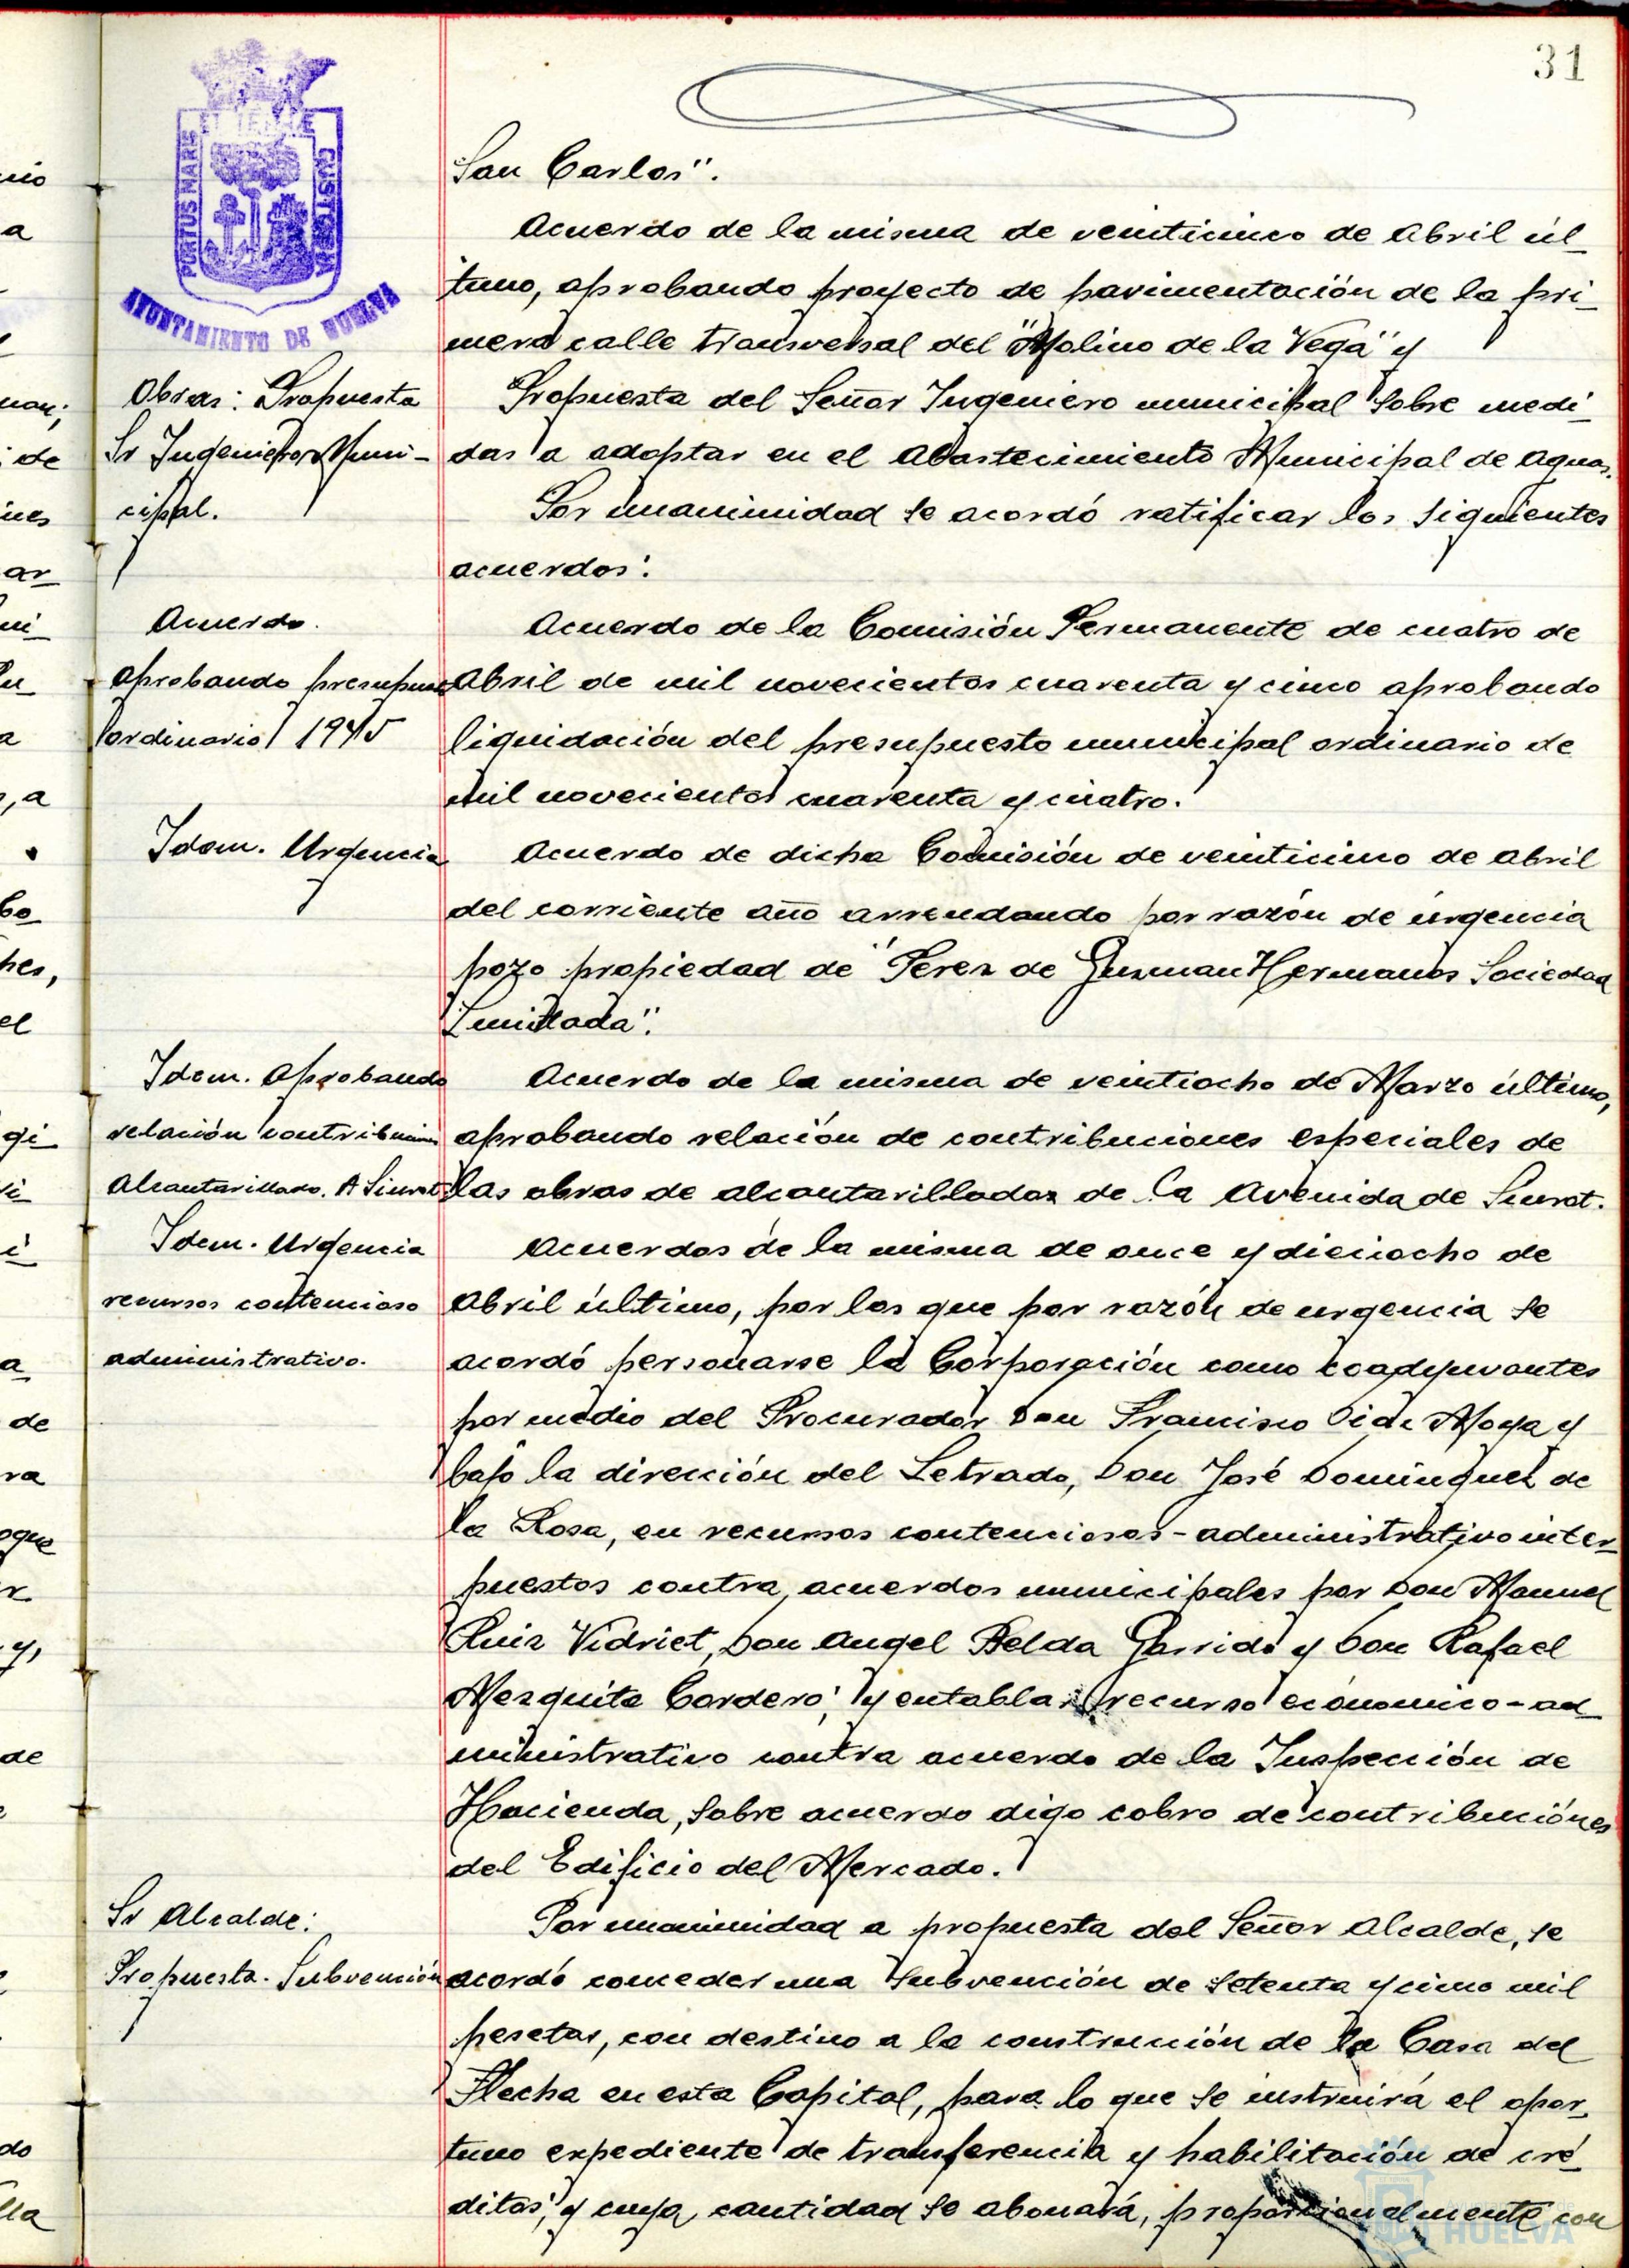 31
PORTUS MARIS
ET TERRAE
CUSTODIA
AYUNTAMIENTO DE HUELVA
San Carlos".
Acuerdo de la misma de veinticinco de Abril úl_
timo, aprobando proyecto de pavimentación de la pri_
mera calle transversal del "Molino de la Vega" y
Obras: Propuesta
Sr Ingeniero Muni-
cipal.
Propuesta del Señor Ingeniero municipal sobre medi_
das a adoptar en el Abastecimiento Municipal de Aguas.
Por unanimidad se acordó ratificar los siguientes
acuerdos:
Acuerdo.
aprobando presupues
ordinario 1945
Acuerdo de la Comisión Permanente de cuatro de
Abril de mil novecientos cuarenta y cinco aprobando
liquidación del presupuesto municipal ordinario de
mil novecientos cuarenta y cuatro.
Idem. Urgencia
Acuerdo de dicha Comisión de veinticinco de Abril
del corriente año arrendando por razón de úrgencia
pozo propiedad de "Perez de Guzman Hermanos Sociedad
Limitada".
Idem. Aprobando
relación contribuciones
Alcantarillado. A Siurot
Acuerdo de la misma de veintiocho de Marzo último,
aprobando relación de contribuciones especiales de
las obras de alcantarillados de la Avenida de Siurot.
Idem. Urgencia
recursos contencioso
administrativo.
Acuerdos de la misma de once y dieciocho de
Abril último, por los que por razón de urgencia se
acordó personarse la Corporación como coadyuvantes
por medio del Procurador Don Francisco Diaz Moya y
bajo la dirección del Letrado, Don José Dominguez de
la Rosa, en recursos contenciosos-administrativo inter_
puestos contra acuerdos municipales por Don Manuel
Ruiz Vidriet, Don Angel Belda Garrido y Don Rafael
Mezquita Cordero; y entablar recurso económico-ad_
ministrativo contra acuerdo de la Inspección de
Hacienda, sobre acuerdo digo cobro de contribuciónes
del Edificio del Mercado.
Sr Alcalde:
Propuesta. Subvención
Por unanimidad a propuesta del Señor Alcalde, se
acordó conceder una subvención de setenta y cinco mil
pesetas, con destino a la construcción de la Casa del
Flecha en esta Capital, para lo que se instruirá el opor_
tuno expediente de transferencia y habilitación de cré_
ditos; y cuya cantidad se abonará, proporcionalmente con
HUELVA